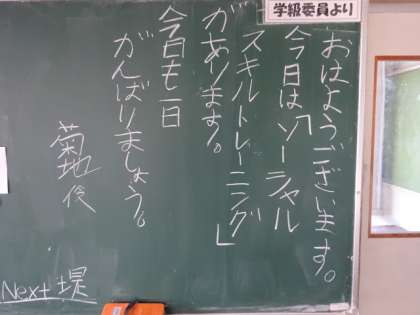 学級委員より
おはようございます。
今日は「ソーシャル
スキルトレーニング」
があります。
今日も一日
がんばりましょう。
菊地
Next 堤